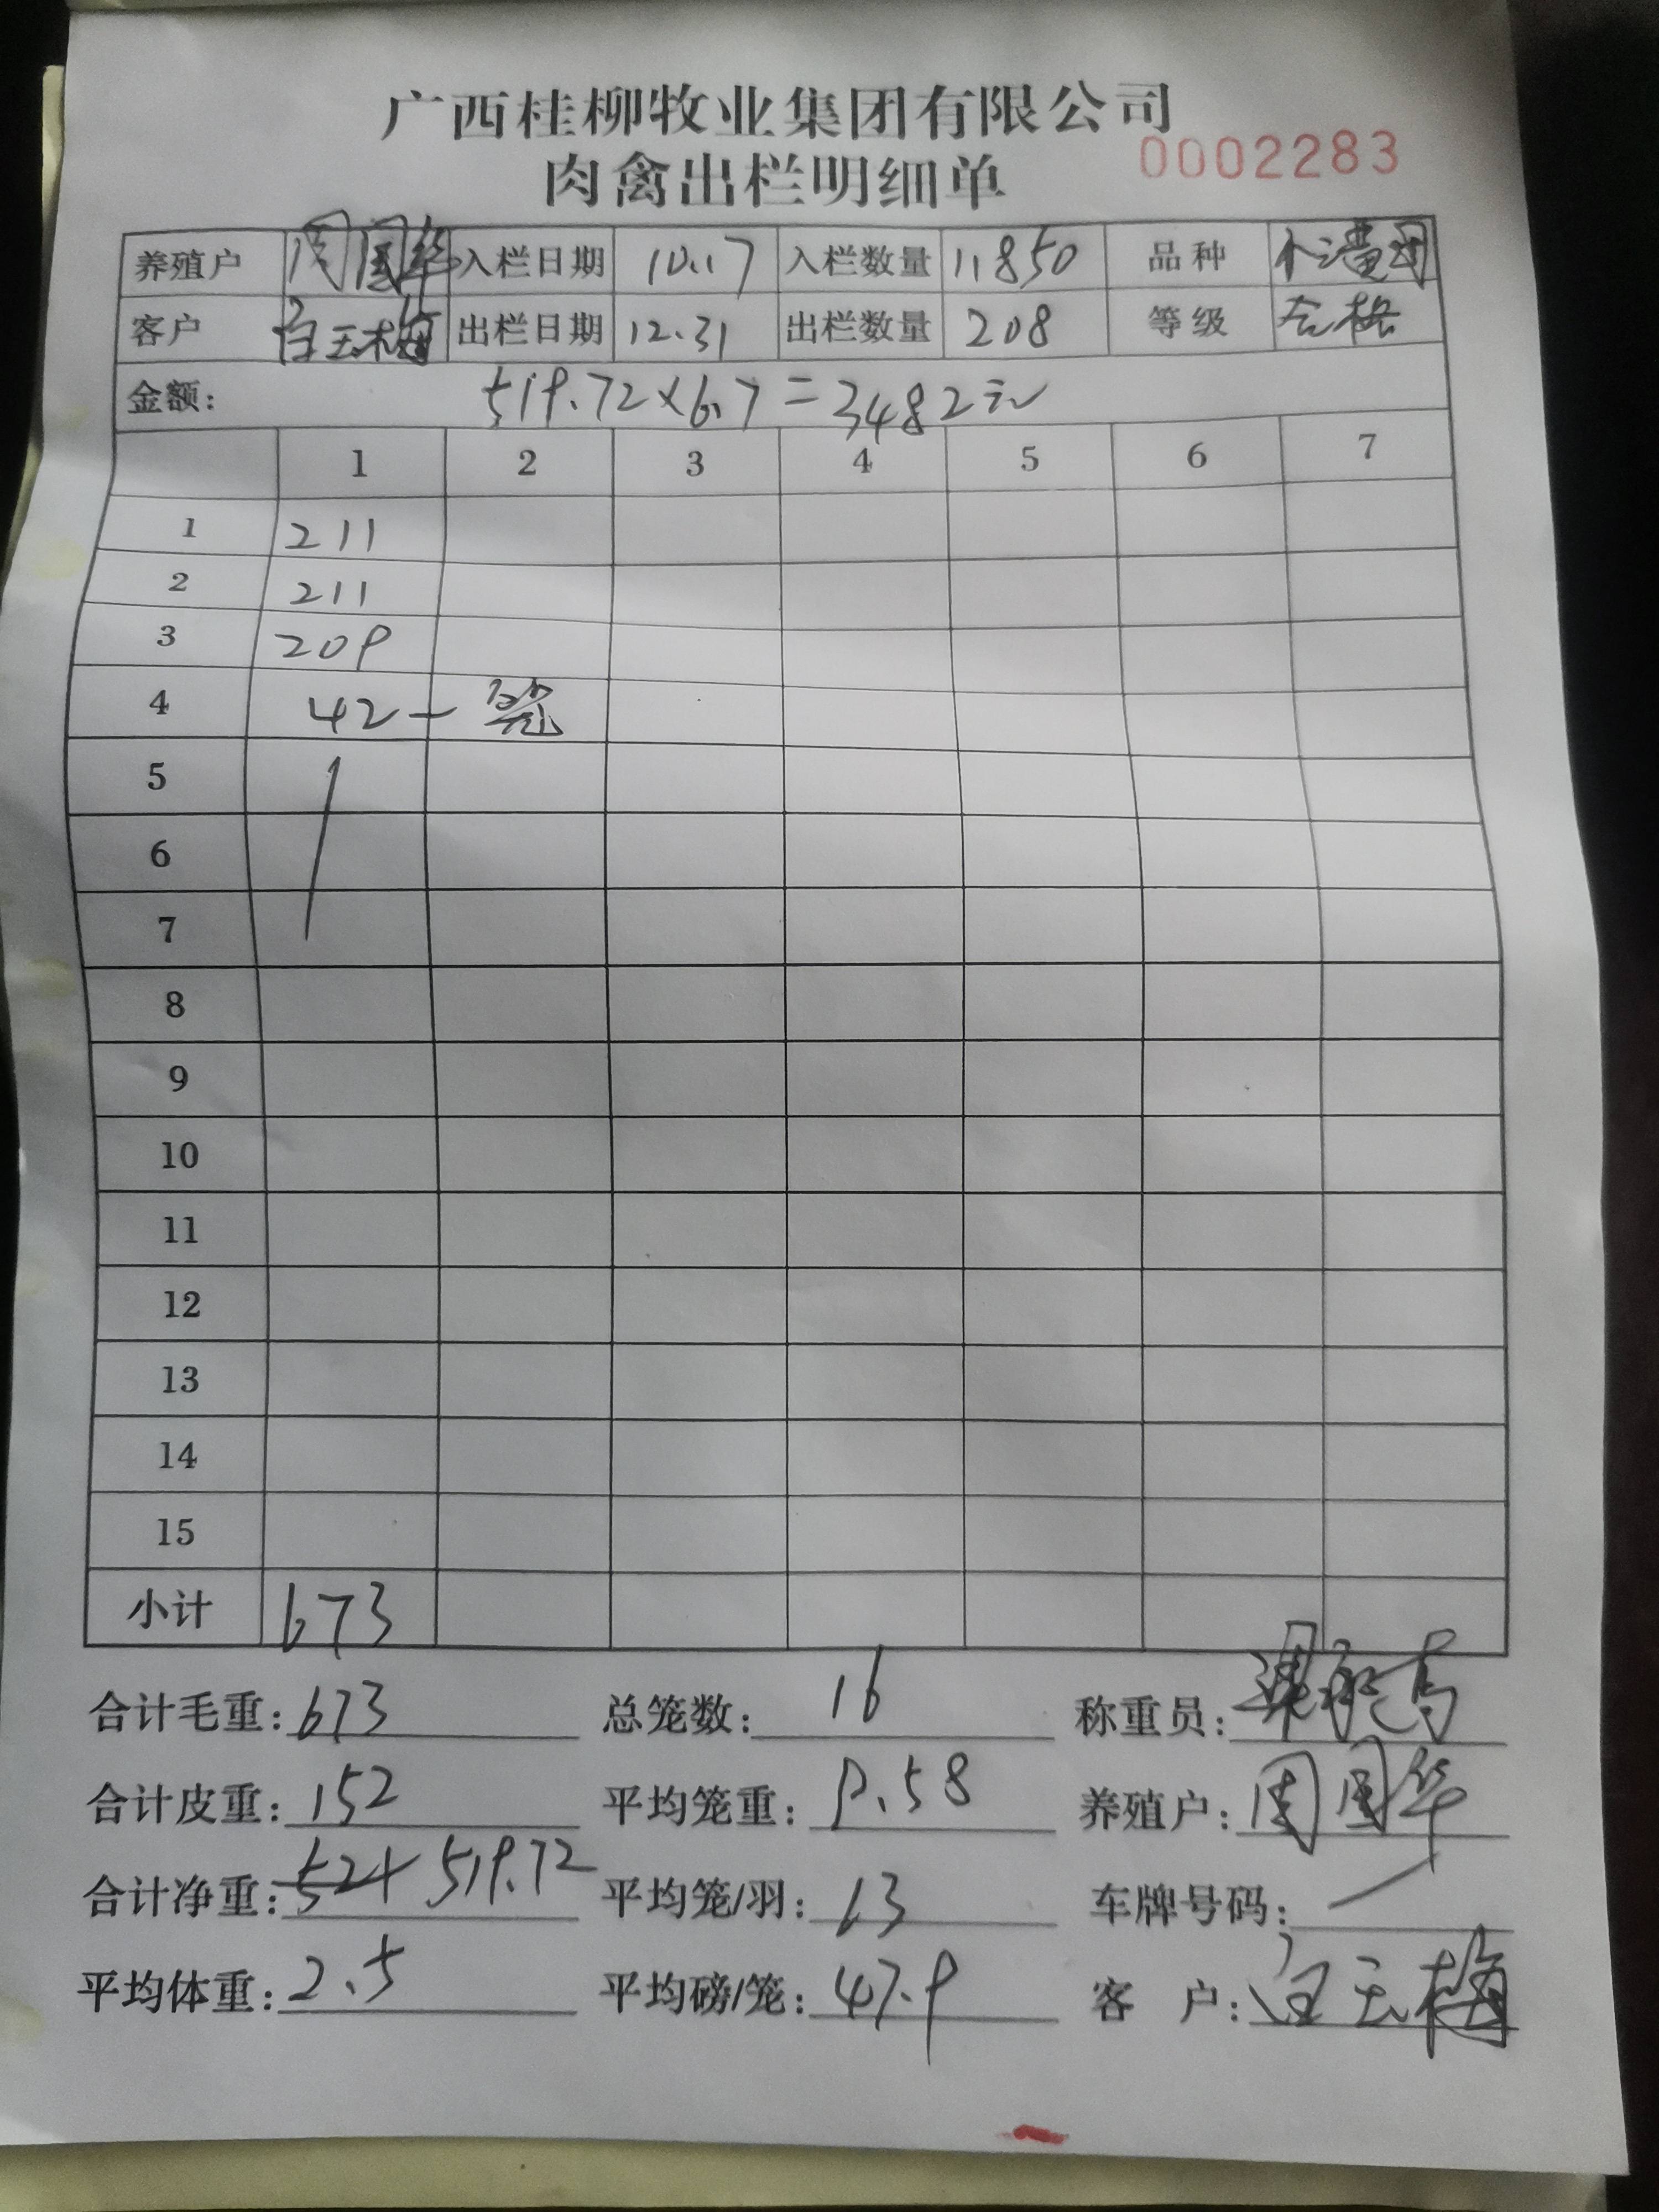 广西桂柳牧业集团有限公司
肉禽出栏明细单
0002283
养殖户 周国华 入栏日期 10.17 入栏数量 11850 品种
客户 白玉梅 出栏日期 12.31 出栏数量 208 等级 合格
金额: 519.72×6.7=3482元
1 2 3 4 5 6 7
1 211
2 211
3 209
4 42一笼
5
6
7
8
9
10
11
12
13
14
15
小计 673
合计毛重: 673 总笼数: 16 称重员:
合计皮重: 152 平均笼重: 9.58 养殖户: 周国华
合计净重: 521 519.72 平均笼/羽: 13 车牌号码:
平均体重: 2.5 平均磅/笼: 47.9 客 户: 白玉梅